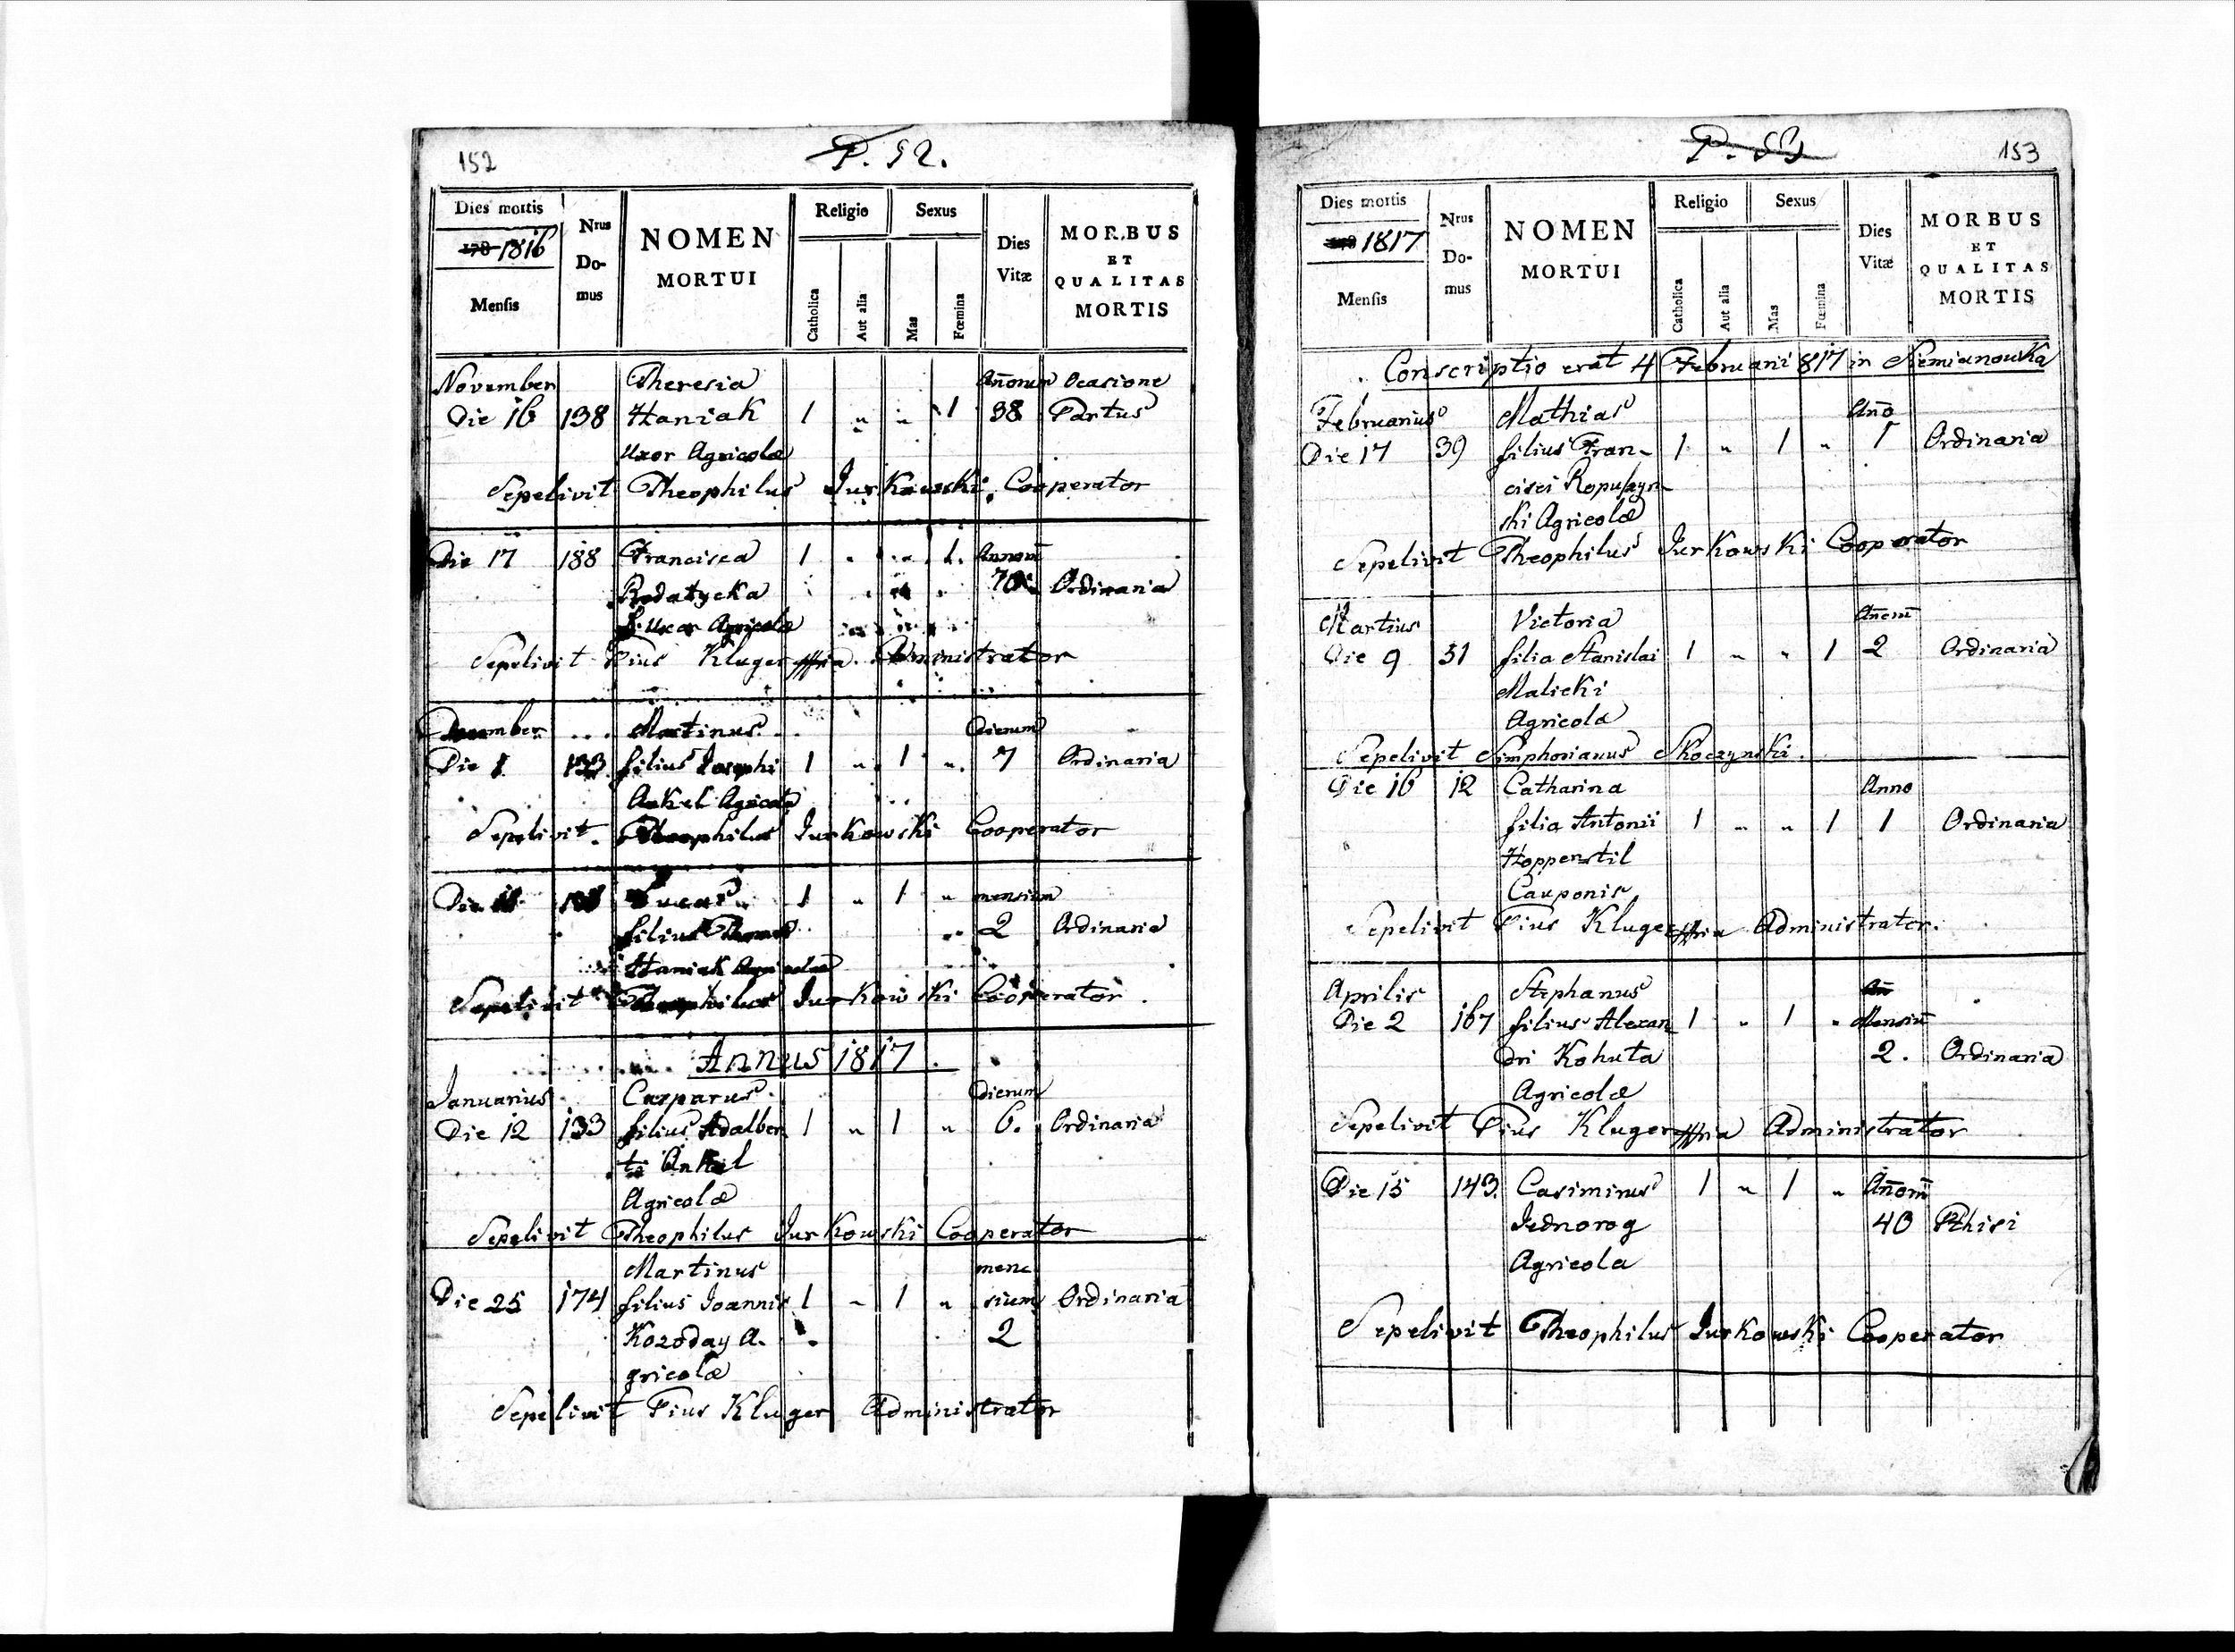 152
P. 52.
Dies mortis
178 1816
Mensis
Nrus
Do-
mus
NOMEN
MORTUI
Religio
Catholica
Aut alia
Sexus
Mas
Fœmina
Dies
Vitæ
MORBUS
ET
QUALITAS
MORTIS
November Theresia Añorum Ocasione
Die 16 138 Haniak 1 " " 1 38 Partus
Uxor Agricolæ
Sepelivit Theophilus Jurkowski Cooperator
Die 17 188 Francisca 1 " " 1. Annorũ
Rodatycka 70. Ordinaria
Uxor Agricolæ
Sepelivit Pius Kluger Administrator
December Martinus Dierum
Die 1 133 filius Josephi 1 " 1 " 7 Ordinaria
Ankel Agricolæ
Sepelivit Theophilus Jurkowski Cooperator
Die Lucas 1 " 1 " mensium
filius 2 Ordinaria
Haniak Agricolæ
Sepelivit Theophilus Jurkowski Cooperator.
Annus 1817.
Januarius Casparus Dierum
Die 12 133 filius Adalber 1 " 1 " 6. Ordinaria
ti Ankel
Agricolæ
Sepelivit Theophilus Jurkowski Cooperator
Martinus mene
Die 25 174 filius Joannis 1 " 1 " sium Ordinaria
Kozoday A. 2
gricolæ
Sepelivit Pius Kluger Administrator
P. 53
153
Dies mortis
178 1817
Mensis
Nrus
Do-
mus
NOMEN
MORTUI
Religio
Catholica
Aut alia
Sexus
Mas
Fœmina
Dies
Vitæ
MORBUS
ET
QUALITAS
MORTIS
Conscriptio erat 4 Februarii 817 in Siemianowka
Februarius Mathias Año
Die 17 39 filius Fran- 1 " 1 " 1 Ordinaria
cisci
ski Agricolæ
Sepelivit Theophilus Jurkowski Cooperator
Martius Victoria Añorũ
Die 9 51 filia Stanislai 1 " " 1 2 Ordinaria
Malicki
Agricola
Sepelivit Simphorianus Skoczynski.
Die 16 12 Catharina Anno
filia Antonii 1 " " 1 1 Ordinaria
Hoppenstil
Cauponis
Sepelivit Pius Kluger Administrator.
Aprilis Stephanus Añ
Die 2 167 filius Alexan 1 " 1 " Mensiũ
dri Kohuta 2. Ordinaria
Agricolæ
Sepelivit Pius Kluger Administrator
Die 15 143. Casimirus 1 " 1 " Añorũ
Jednorog 40 Pthisi
Agricola
Sepelivit Theophilus Jurkowski Cooperator